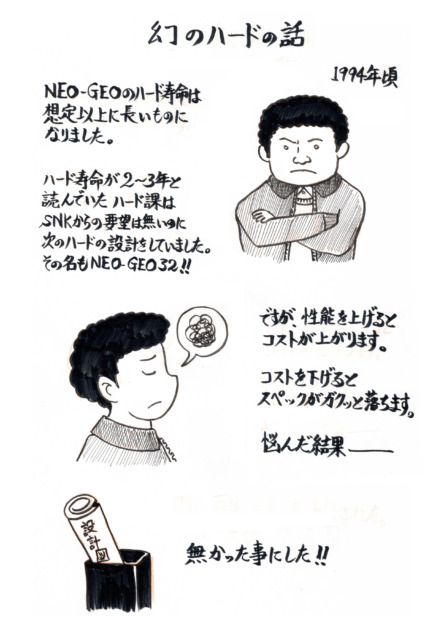 幻のハードの話
1994年頃
NEO-GEOのハード寿命は
想定以上に長いものに
なりました。
ハード寿命が2〜3年と
読んでいたハード課は
SNKからの要望は無いのに
次のハードの設計をしていました。
その名もNEO-GEO32!!
ですが、性能を上げると
コストが上がります。
コストを下げると
スペックがガクッと落ちます。
悩んだ結果——
設計図
無かった事にした!!